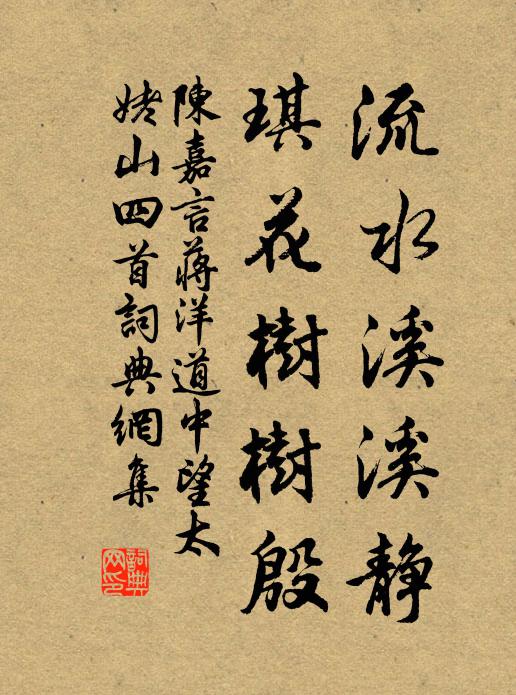 流水溪溪静
琪花樹樹殷
陳嘉言蔣洋道中望太
姥山四首詞典網集
詞典
网印